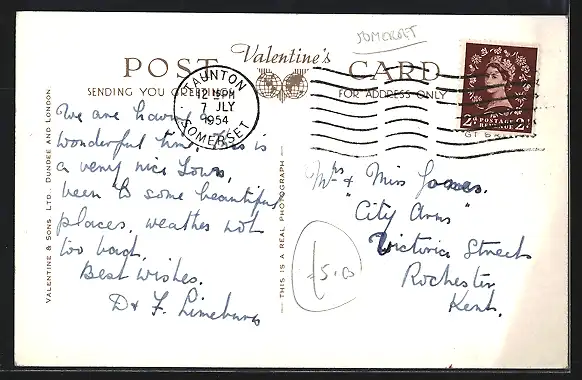 SOMERSET
Valentine's
POST CARD
SENDING YOU GREETINGS
FOR ADDRESS ONLY
TAUNTON
12 15PM
7 JLY
1954
SOMERSET
2D POSTAGE REVENUE 2D
We are having a
wonderful time. This is
a very nice Town,
been to some beautiful
places, weather not
too bad,
Best wishes.
D & F.
Mrs & Miss Jones.
"City Arms"
Victoria Street
Rochester
Kent.
VALENTINE & SONS LTD., DUNDEE AND LONDON.
THIS IS A REAL PHOTOGRAPH